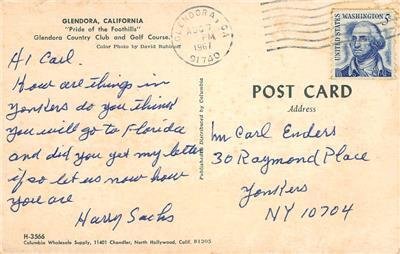 GLENDORA, CALIFORNIA
"Pride of the Foothills"
Glendora Country Club and Golf Course.
Color Photo by David Buhlhoff
HI Carl.
How are things in
Yonkers do you think
you will go to Florida
and did you get my letter
if so let us now how
you are
Harry Sachs
H-3566
Columbia Wholesale Supply, 11401 Chandler, North Hollywood, Calif. 91205
Published and Distributed by Columbia
GLENDORA, CA
AUG 7
PM
1967
91740
UNITED STATES
WASHINGTON 5c
POST CARD
Address
Mr Carl Enders
30 Raymond Place
Yonkers
NY 10704